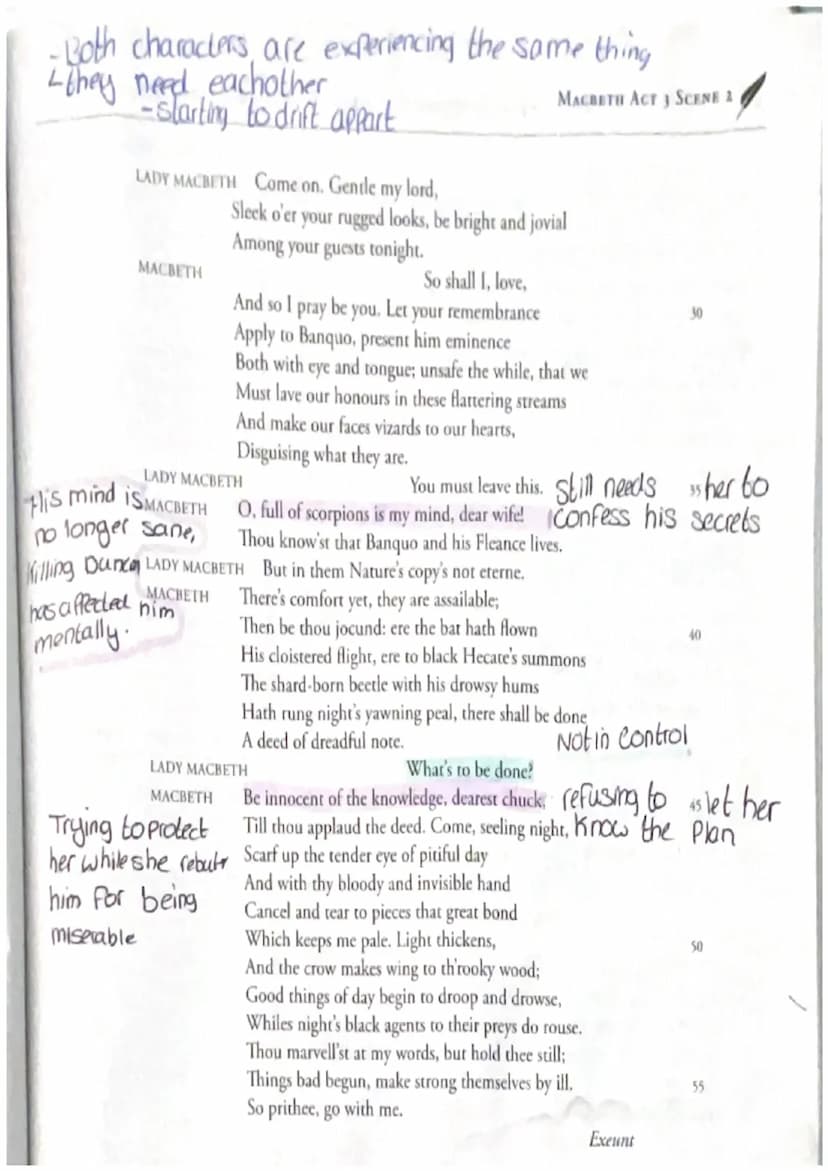 -Both characters are experiencing the same thing
↳they need eachother
-starting to drift appart
MACBETH ACT 3 SCENE 2
LADY MACBETH Come on. Gentle my lord,
Sleek o'er your rugged looks, be bright and jovial
Among your guests tonight.
MACBETH So shall I, love,
And so I pray be you. Let your remembrance 30
Apply to Banquo, present him eminence
Both with eye and tongue; unsafe the while, that we
Must lave our honours in these flattering streams
And make our faces vizards to our hearts,
Disguising what they are.
LADY MACBETH You must leave this. 35
Still needs her to
confess his secrets
MACBETH O, full of scorpions is my mind, dear wife!
Thou know'st that Banquo and his Fleance lives.
LADY MACBETH But in them Nature's copy's not eterne.
His mind is
no longer sane,
Killing Duncan
has affected him
mentally.
MACBETH There's comfort yet, they are assailable;
Then be thou jocund: ere the bat hath flown 40
His cloistered flight, ere to black Hecate's summons
The shard-born beetle with his drowsy hums
Hath rung night's yawning peal, there shall be done
A deed of dreadful note.
Not in control
LADY MACBETH What's to be done?
MACBETH Be innocent of the knowledge, dearest chuck, 45
refusing to let her
know the Plan
Till thou applaud the deed. Come, seeling night,
Trying to protect
her while she
him for being
miserable
Scarf up the tender eye of pitiful day
And with thy bloody and invisible hand
Cancel and tear to pieces that great bond
Which keeps me pale. Light thickens, 50
And the crow makes wing to th'rooky wood;
Good things of day begin to droop and drowse,
Whiles night's black agents to their preys do rouse.
Thou marvell'st at my words, but hold thee still;
Things bad begun, make strong themselves by ill. 55
So prithee, go with me.
Exeunt